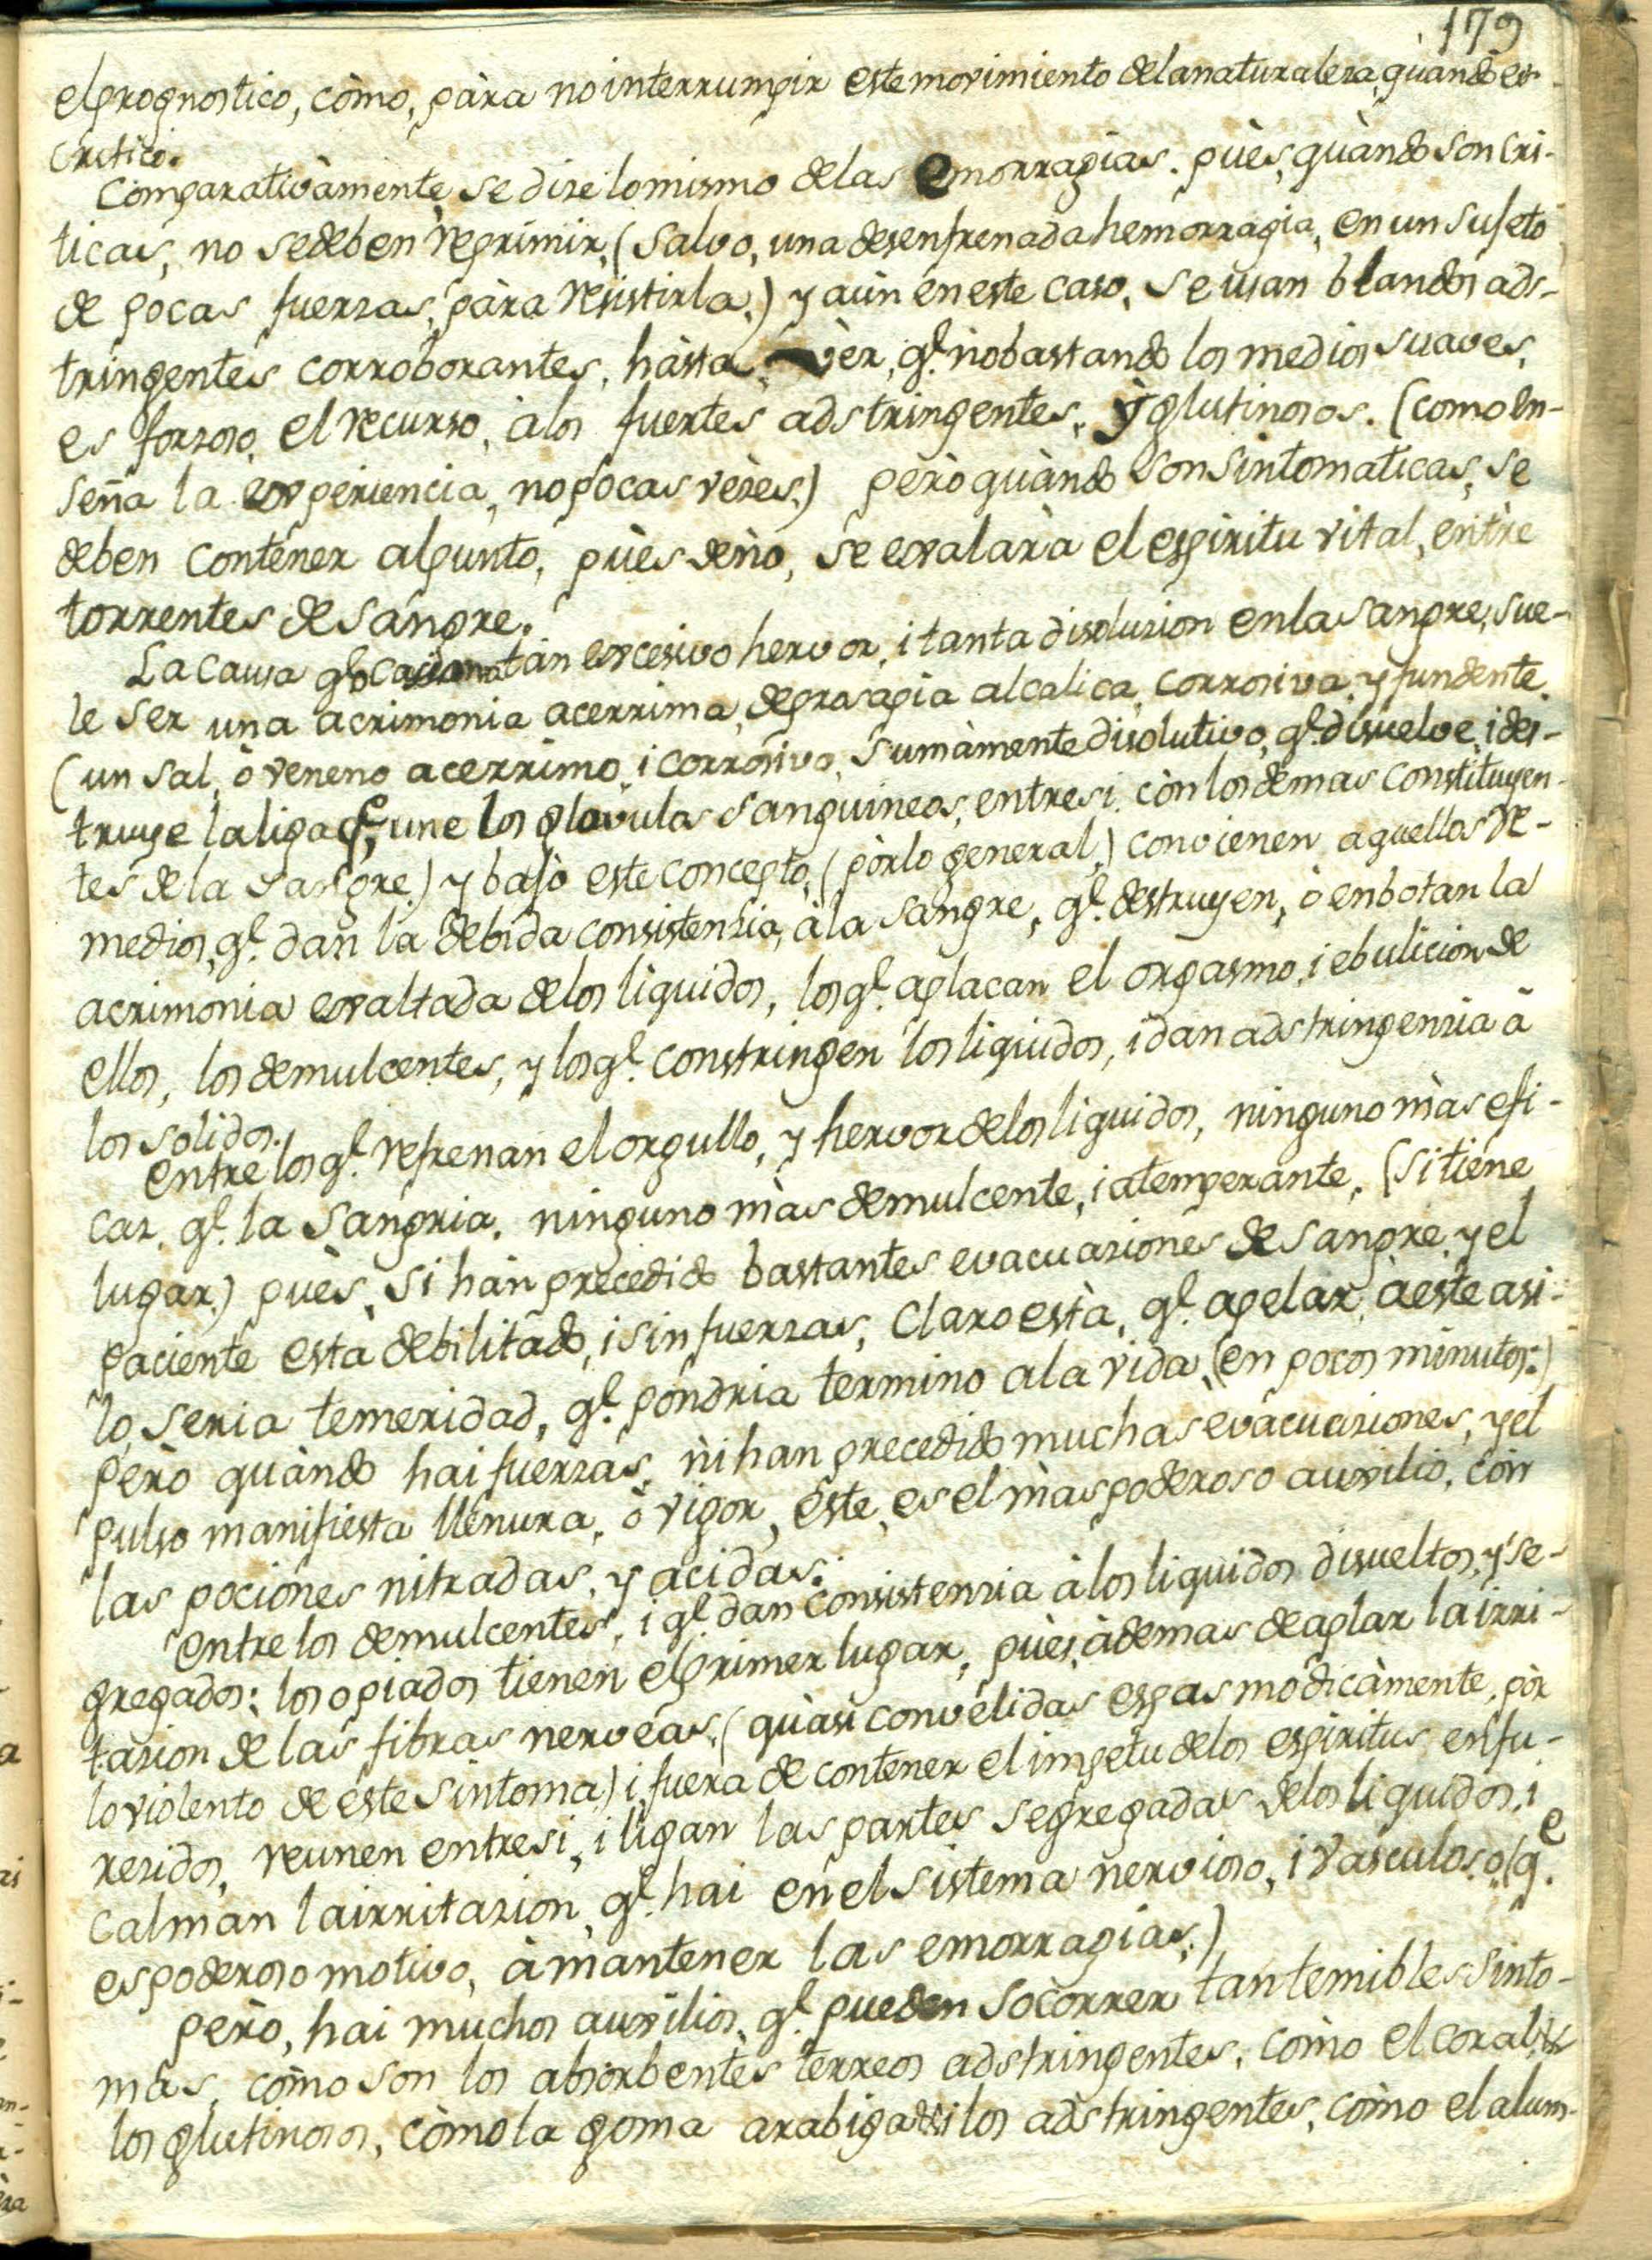 179
el prognostico, còmo, pàra no interrumpir este movimiento de la naturaleza, quàndo es
critico.
Comparativàmente, se dize lo mismo de las emorragias. puès, quàndo son cri-
ticas, no se deben reprimir, (salvo, una desenfrenada hemorragia, en un sujeto
de pocas fuerzas, pàra resistirla,) y aùn en este caso, se usan blandos ads-
tringentes corroborantes, hàsta, vèr, q.e no bastando los medios suaves,
es forzoso, el recurso, à los fuertes adstringentes, ÿ glutinosos. (como en-
seña la experiencia, no pocas vèzes.) però quàndo son sintomaticas, se
deben contener al punto, pùes de ño, se exalarà el espiritu vital, entre
torrentes de sangre.
La causa q.e tàn excesivo hervor, i tanta disoluzion en la sangre, sue-
le ser una acrimonia acerrima, de prosapia alcalica, corrosiva, y fundente
(un sal, ò veneno acerrimo, i corrosivo, sumàmente disolutivo, q.e disuelve, i des-
truye la liga q.e une los glovulos sanguineos, entre si, còn los demas constituyen-
tes de la sangre.) y bajo este concepto, (pòr lo general,) convienen aquellos re-
medios, q.e dan la debida consistenzia, à la sangre, q.e destruyen, ò enbotan la
acrimonia exaltada de los liquidos, los q.e aplacan el orgasmo, i ebulicion de
ellos, los demulcentes, y los q.e constringen los liquidos, i dan adstringenzia à
los solidos.
entre los q.e refrenan el orgullo, y hervor de los liquidos, ninguno màs efi-
caz, q.e la sangria, ninguno màs demulcente, i atemperante, (si tiene
lugar.) pùes, si hàn precedido bastantes evacuaziones de sangre, y el
paciente està debilitado, i sin fuerzas, claro està, q.e apelar, à este asi-
lo, seria temeridad, q.e pondria termino a la vida, (en pocos minutos:)
però quàndo hai fuerzas, nì han precedido muchas evacuaziones, y el
pulso manifiesta llenura, ò vigor, este, es el màs poderoso auxilio, còn
las pociones nitradas, y acidas.
entre los demulcentes, i q.e dan consistenzia à los liquidos disueltos, y se-
gregados: los opiados tienen el primer lugar, pùes, àdemas de aplar la irri-
tazion de las fibras nerveas, (quàsi convelidas espasmodicàmente, pòr
lo violento de este sintoma) i, fuera de contener el impetu de los espiritus enfu-
rezidos, reunen entre si, i ligan las partes segregadas de los liquidos, i
calman la irritazion, q.e hai en el sistema nervioso, i vasculoso, (q.e
es poderoso motivo, à mantener las emorragias,)
però, hai muchos auxilios, q.e pueden socorrer tan temibles sinto-
mas, còmo son los absorbentes terreos adstringentes, còmo el coral, &
los glutinosos, còmo la goma arabiga & i los adstringentes, còmo el alum-